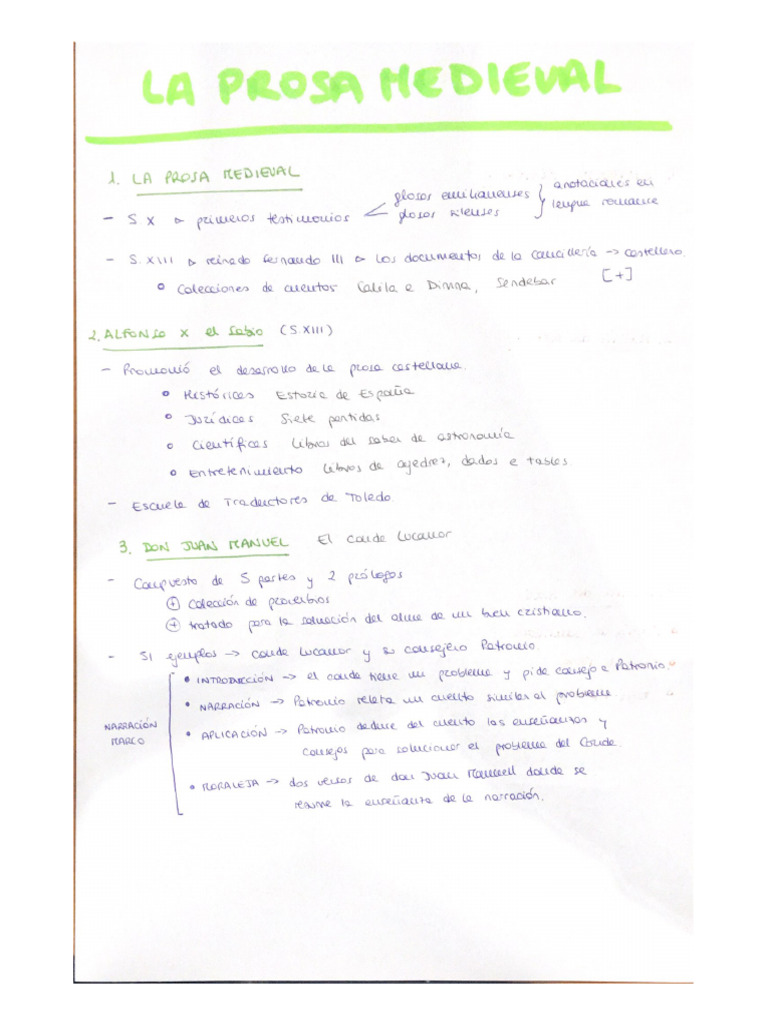 LA PROSA MEDIEVAL
1. LA PROSA MEDIEVAL
- S X ▹ primeros testimonios < glosas emilianenses } anotaciones en
glosas silenses } lengua romance
- S. XIII ▹ reinado Fernando III ▹ los documentos de la cancillería → castellano.
° Colecciones de cuentos Calila e Dimna, Sendebar [+]
2. ALFONSO X el Sabio (S.XIII)
- Promovió el desarrollo de la prosa castellana.
° Históricas Estoria de España
° Jurídicas Siete partidas
° Científicas Libros del saber de astronomía
° Entretenimiento Libros de ajedrez, dados e tablas.
- Escuela de Traductores de Toledo.
3. DON JUAN MANUEL El Conde Lucanor
- Compuesto de 5 partes y 2 prólogos
⊕ colección de proverbios
⊕ tratado para la salvación del alma de un buen cristiano.
- 51 ejemplos → conde Lucanor y su consejero Patronio.
• INTRODUCCIÓN → el conde tiene un problema y pide consejo a Patronio.
• NARRACIÓN → Patronio relata un cuento similar al problema.
NARRACIÓN MARCO
• APLICACIÓN → Patronio deduce del cuento las enseñanzas y
consejos para solucionar el problema del Conde.
• MORALEJA → dos versos de don Juan Manuell donde se
resume la enseñanza de la narración.